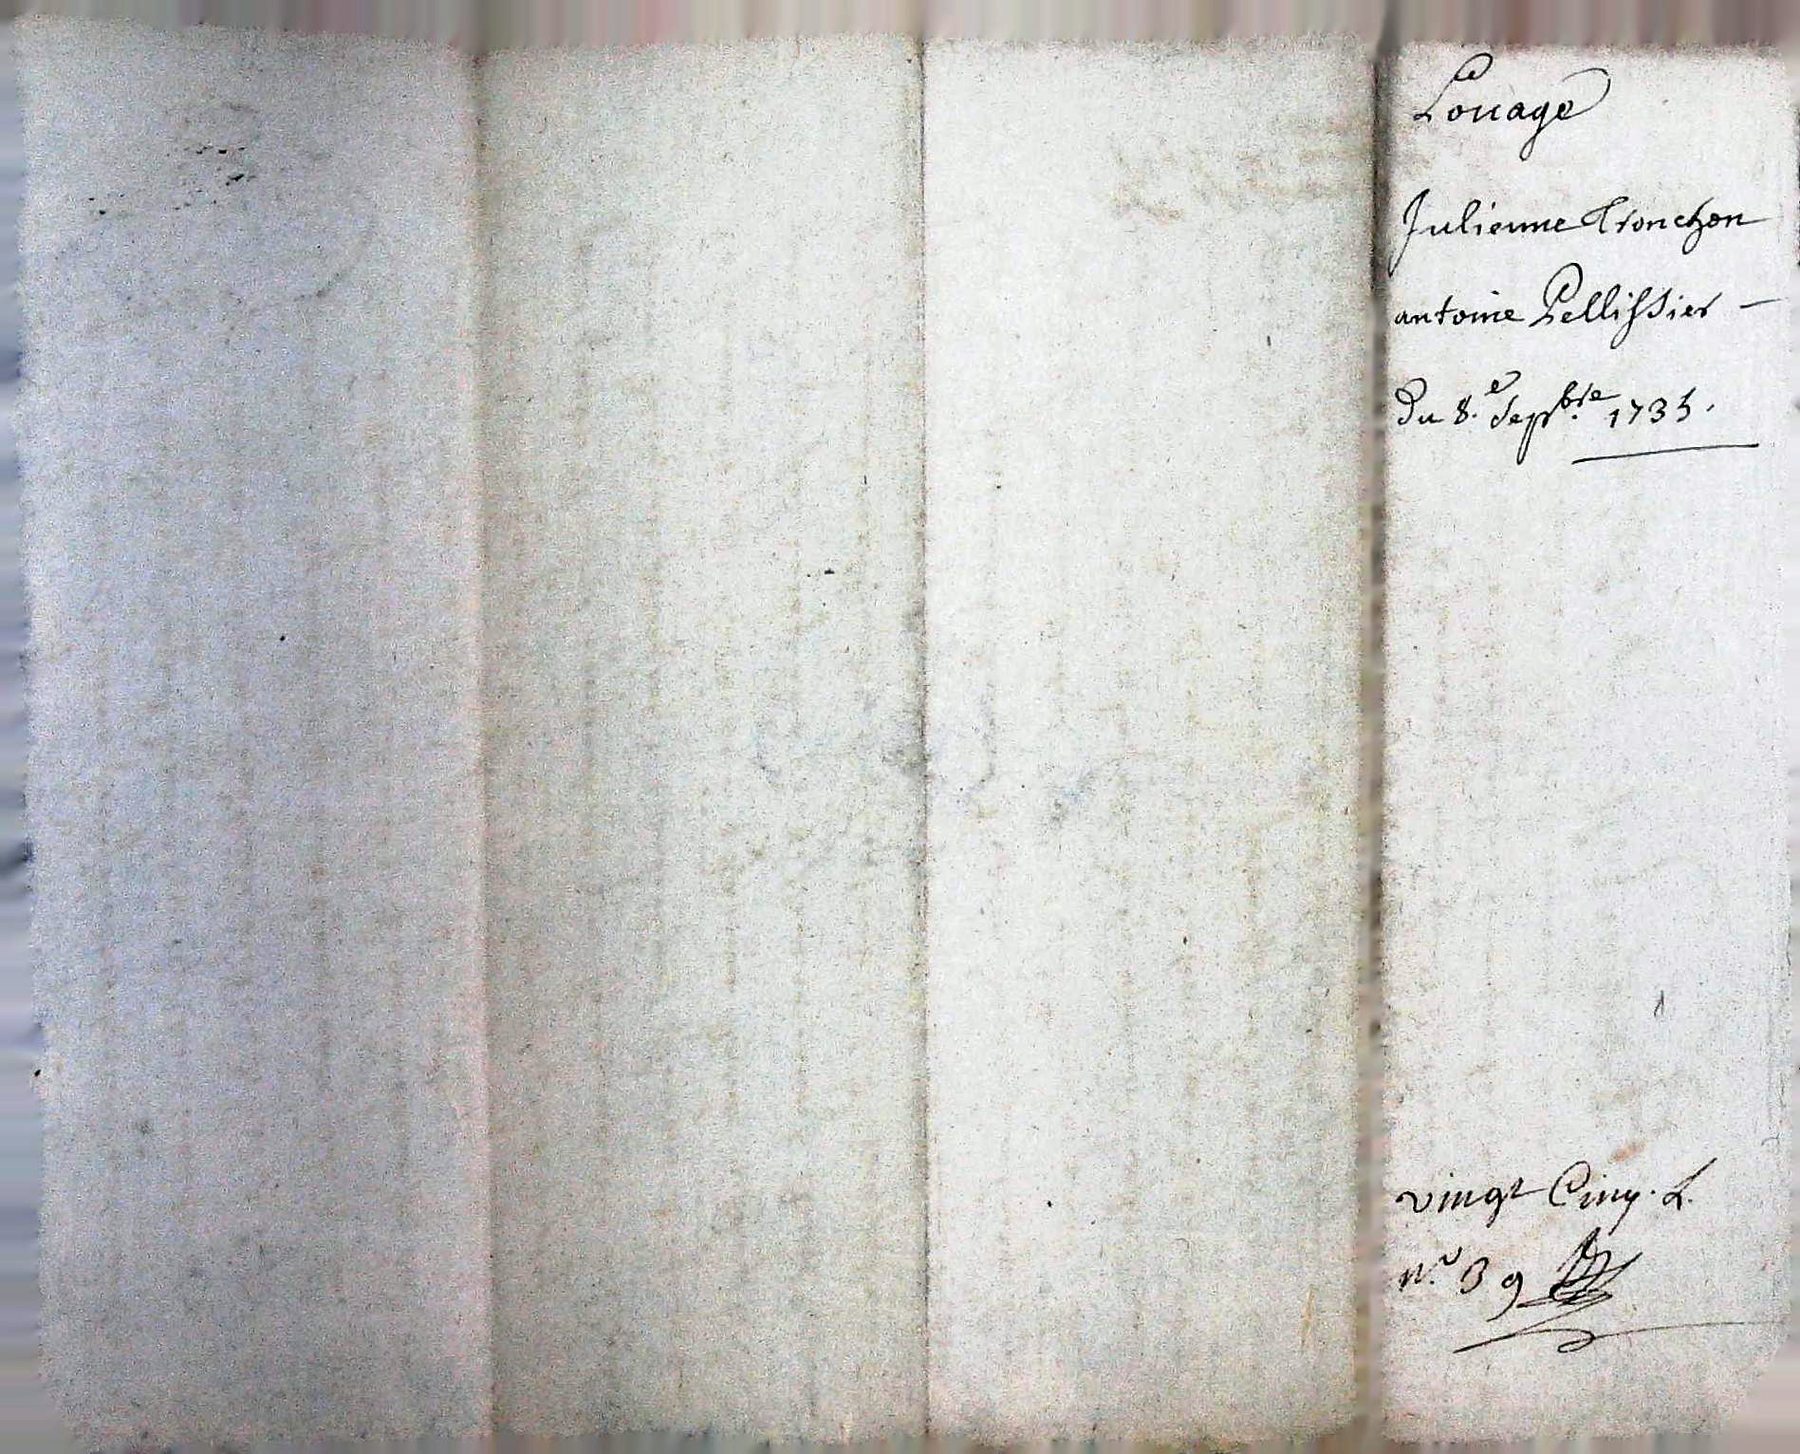 Louage
Julienne Tronchon
antoine Pellissier —
Du 8.e Sepbre 1735.
vingt Cinq. L.
N.o 39